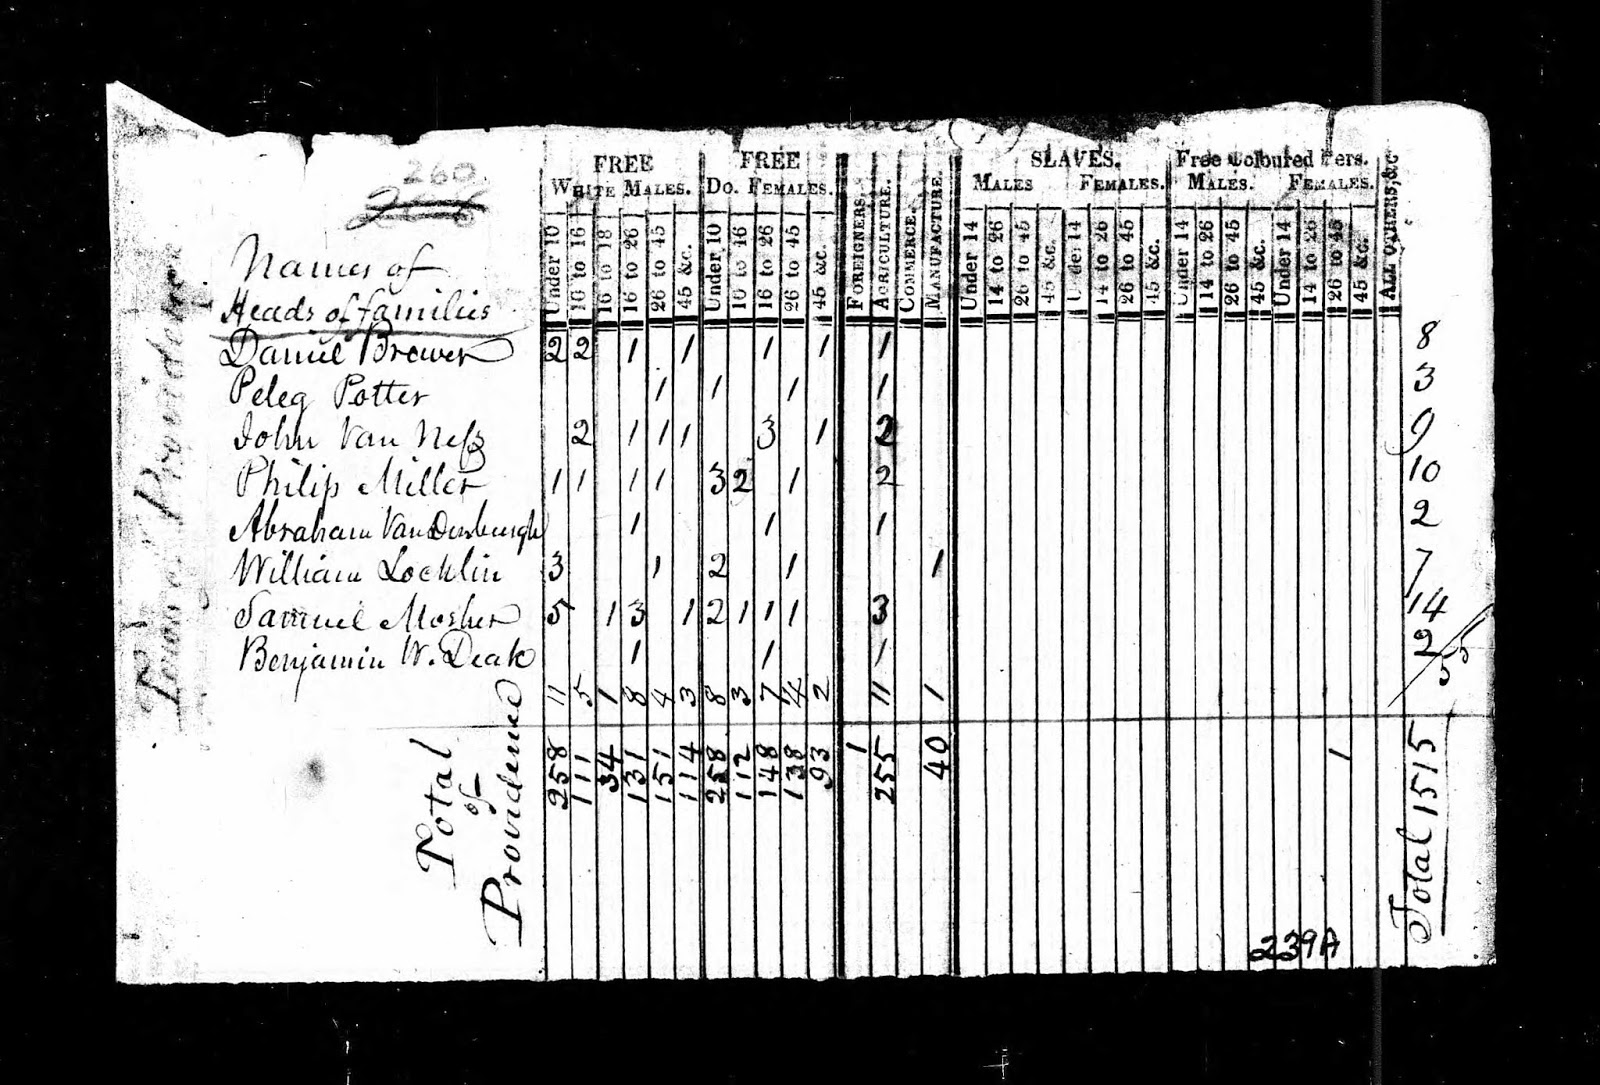 260
Names of
Heads of families
FREE WHITE MALES. FREE DO. FEMALES. SLAVES. Free Coloured Pers.
MALES FEMALES. MALES. FEMALES.
Under 10 10 to 16 16 to 18 16 to 26 26 to 45 45 &c. Under 10 10 to 16 16 to 26 26 to 45 45 &c. FOREIGNERS. AGRICULTURE. COMMERCE. MANUFACTURE. Under 14 14 to 26 26 to 45 45 &c. Under 14 14 to 26 26 to 45 45 &c. Under 14 14 to 26 26 to 45 45 &c. Under 14 14 to 26 26 to 45 45 &c. ALL OTHERS, &c
Daniel Brewer 2 2 1 1 1 1 1 8
Peleg Potter 1 1 1 1 3
John Van Neſs 2 1 1 1 3 1 2 9
Philip Miller 1 1 1 1 3 2 1 2 10
Abraham VanDenburgh 1 1 1 2
William Locklin 3 1 2 1 1 7
Samuel Mosher 5 1 3 1 2 1 1 1 3 14
Benjamin W. Deak 1 1 1 2
11 5 1 8 4 3 8 3 7 4 2 11 1 55
Total of Providence 258 111 34 131 151 114 258 112 148 138 93 1 255 40 1 Total 1515
239A
Providence